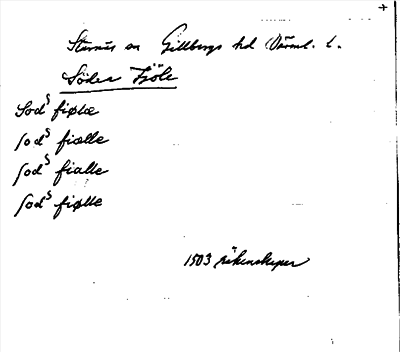 +
Stavnäs sn Gillbergs hd Värml. l.
Söder Fjöle
Sodˢ fiølæ
sodˢ fiælle
sodˢ fialle
sodˢ fiølle
1503 räkenskaper